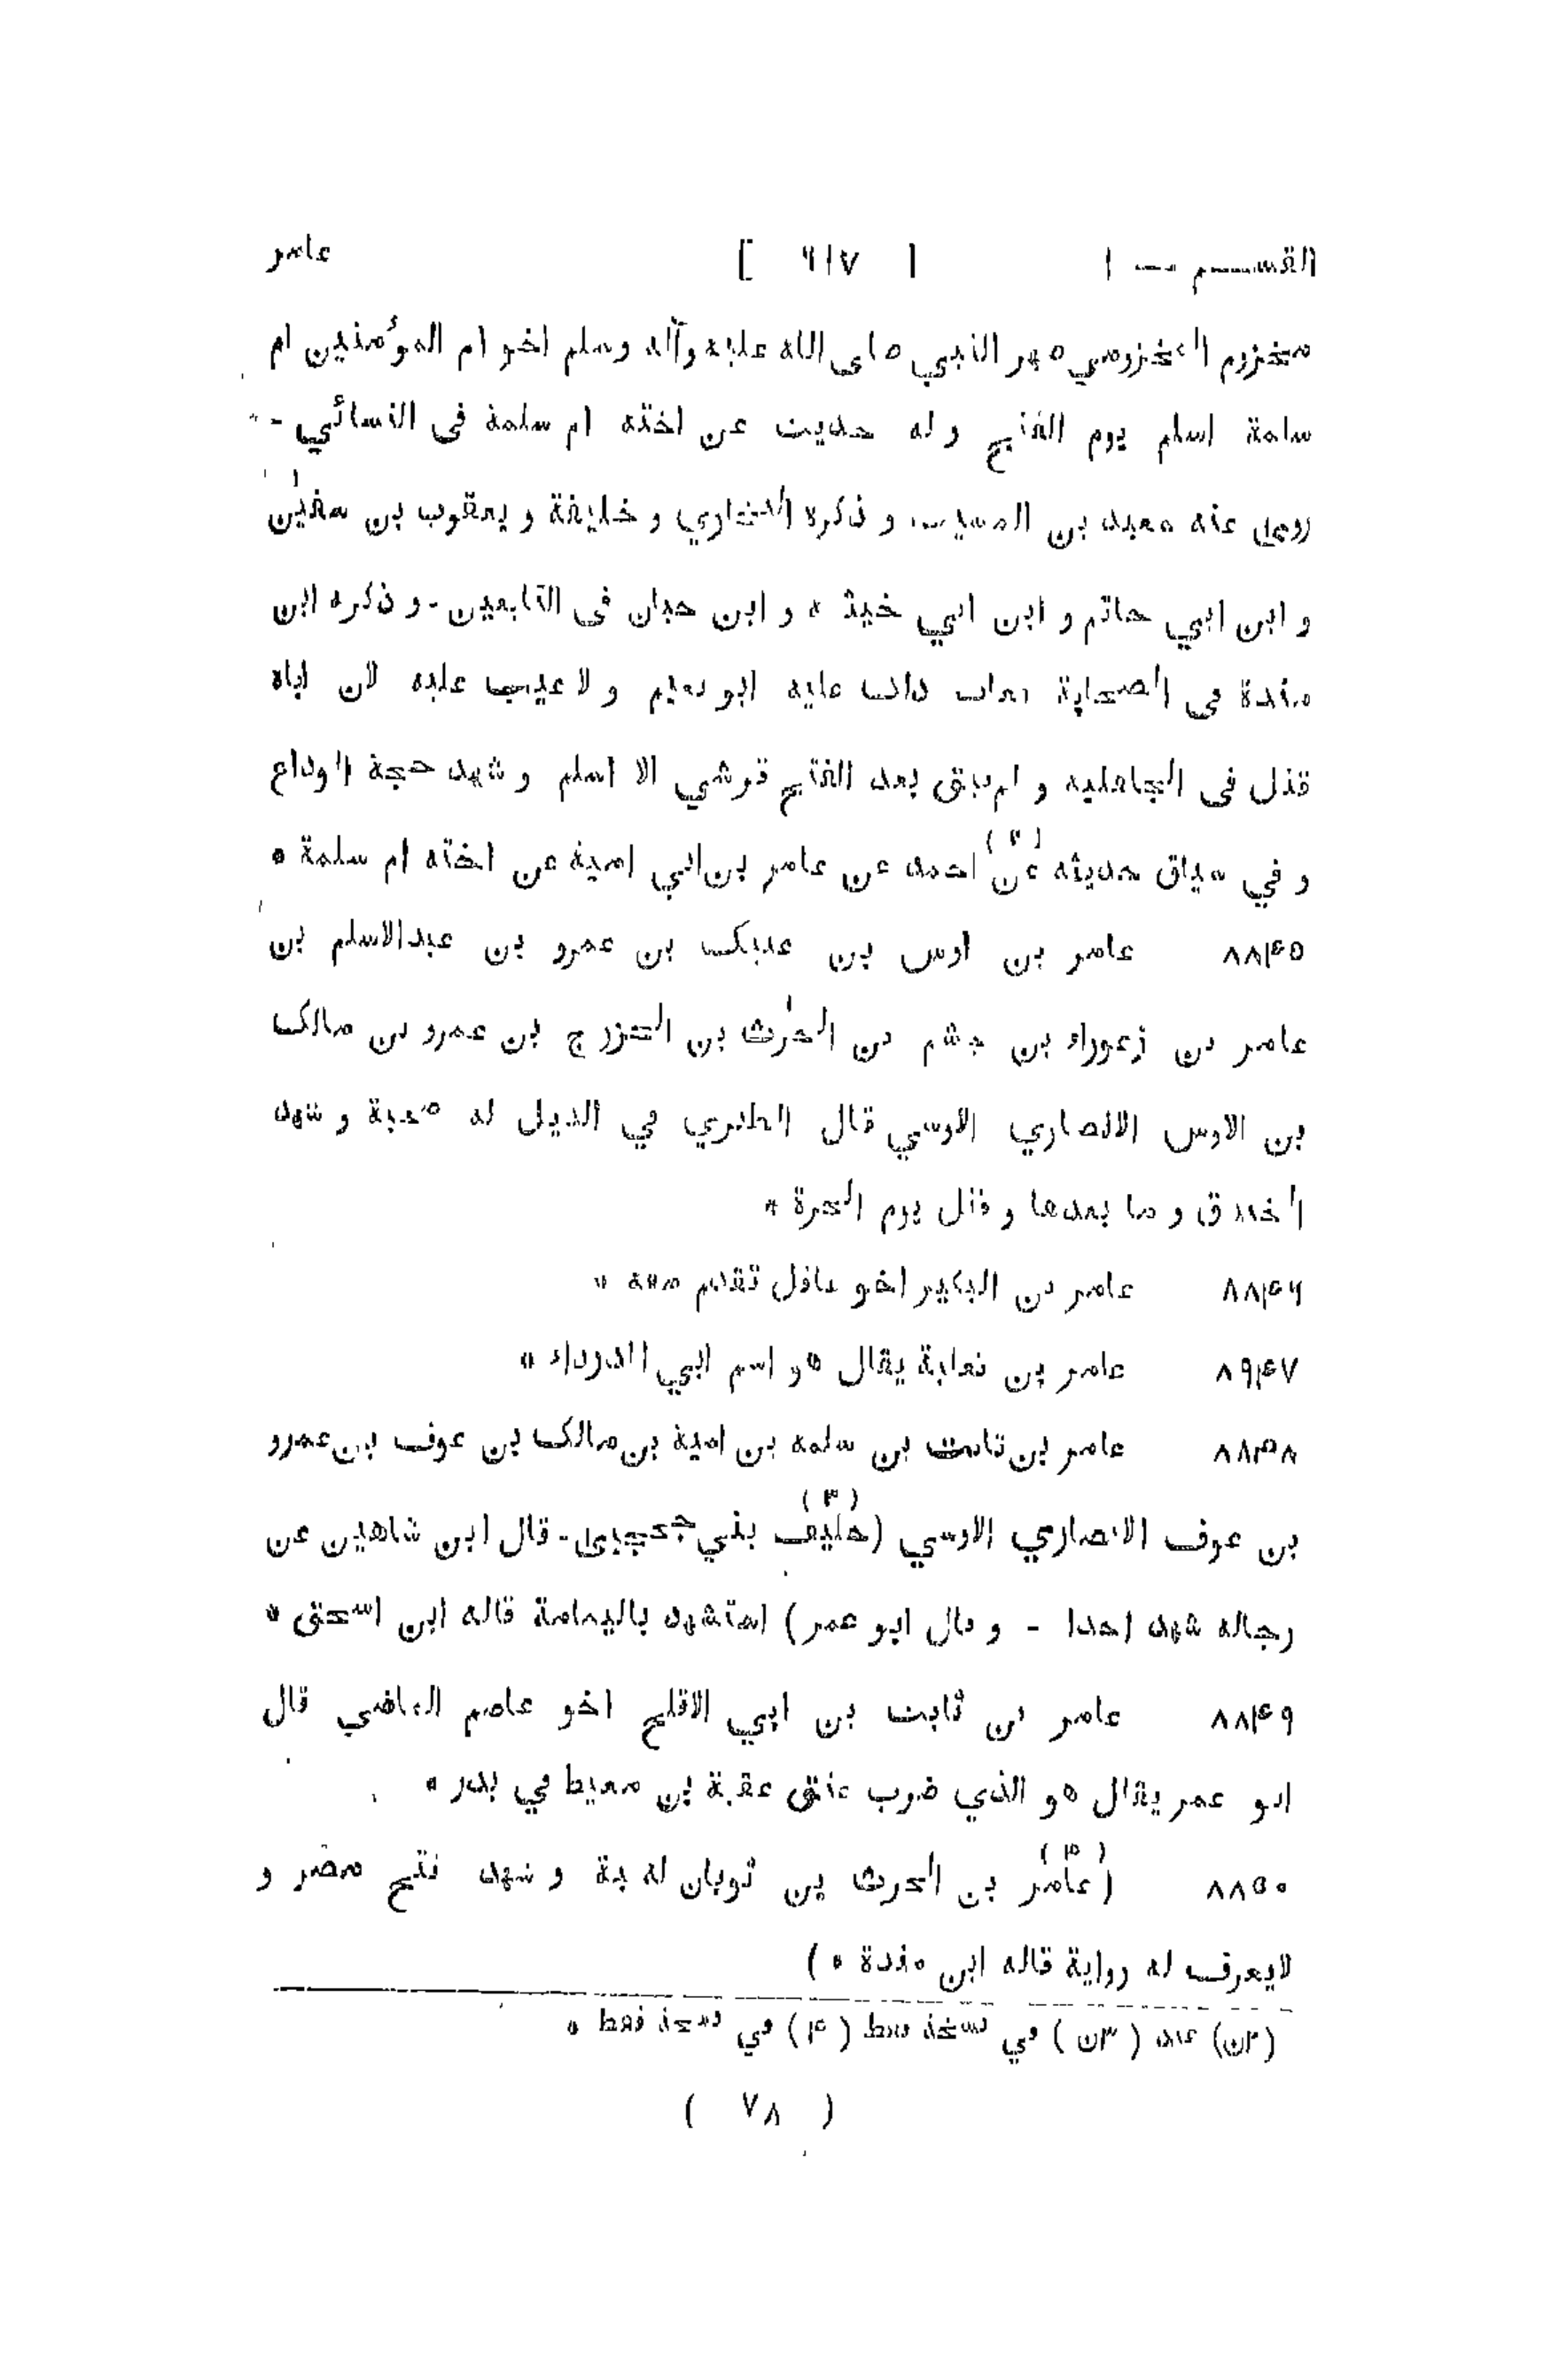 القسم — ١ [ ٦١٧ ] عامر
مخزوم المخزومي صهر النبي صلى الله عليه وآله وسلم اخو ام المؤمنين ام
سلمة اسلم يوم الفتح وله حديث عن اخته ام سلمة فى النسائي -
روى عنه سعيد بن المسيب و ذكره البخاري و خليفة و يعقوب بن سفين
و ابن ابي حاتم و ابن ابي خيثمة و ابن حبان فى التابعين - و ذكره ابن
مندة فى الصحابة عليه ابو نعيم و لا عيب عليه لان اباه
قتل فى الجاهليه و لم يبق بعد الفتح قرشي الا اسلم و شهد حجة الوداع
و في سياق حديثه عن (٢) احمد عن عامر بن ابي امية عن اخته ام سلمة *
٨٨٤٥ عامر بن اوس بن عتيك بن عمرو بن عبدالاسلم بن
عامر بن زعوراء بن جشم بن الحرث بن الخزرج بن عمرو بن مالك
بن الاوس الانصاري الاوسي قال الطبري في الذيل له صحبة و شهد
الخندق و ما بعدها و قتل يوم الحرة *
٨٨٤٦ عامر بن البكير اخو عاقل تقدم معه *
٨٩٤٧ عامر بن ثعلبة يقال هو اسم ابي الدرداء *
٨٨٤٨ عامر بن ثابت بن سلمه بن امية بن مالك بن عوف بن عمرو
بن عوف الانصاري الاوسي (حليف (٣) بني جحجبى - قال ابن شاهين عن
رجاله شهد احدا - و قال ابو عمر) استشهد باليمامة قاله ابن اسحق *
٨٨٤٩ عامر بن ثابت بن ابي الاقلح اخو عاصم الماضي قال
ابو عمر يقال هو الذي ضرب عنق عقبة بن معيط في بدر *
٨٨٥٠ (عامر (٤) بن الحرث بن ثوبان له بة و شهد فتح مصر و
لايعرف له رواية قاله ابن مندة *)
(٢ن) عند (٣ن) في نسخة فقط (٤) في نسخة فقط *
( ٧٨ )